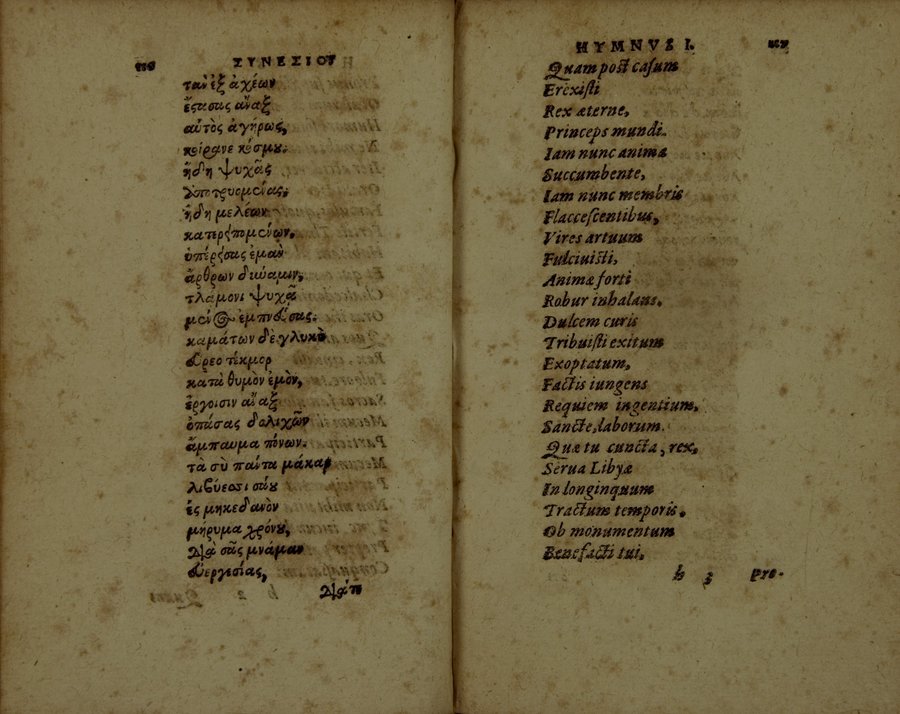 116 ΣΥΝΕΣΙΟΥ
τὰν ἐξ ἀχέων
ἔστασας ἄναξ
αὐτὸς ἀγήρως,
κοίρανε κόσμου.
ἤδη ψυχᾶς
ἀποτρυομένας,
ἤδη μελέων
κατεριπομένων,
ὑπέρεισας ἐμὰν
ἄρθρων δύναμιν,
τλάμονι ψυχᾷ
μένος ἐμπνεύσας.
καμάτων δὲ γλυκὺ
εὕρεο τέκμορ
κατὰ θυμὸν ἐμὸν,
ἔργοισιν ἄναξ
ὀπάσας δολιχῶν
ἄμπαυμα πόνων.
τὰ σὺ πάντα μάκαρ
λιβύεσσι σάου
ἐς μηκεδανὸν
μήρυμα χρόνου,
διὰ σᾶς μνάμαν
εὐεργεσίας,
διά π
HYMNVS I. 117
Quam post casum
Erexisti
Rex æterne,
Princeps mundi.
Iam nunc anima
Succumbente,
Iam nunc membris
Flaccescentibus,
Vires artuum
Fulciuisti,
Animæ forti
Robur inhalans.
Dulcem curis
Tribuisti exitum
Exoptatum,
Factis iungens
Requiem ingentium,
Sancte, laborum.
Quæ tu cuncta, rex,
Serua Libyæ
In longinquum
Tractum temporis.
Ob monumentum
Benefacti tui,
h 3 pre-